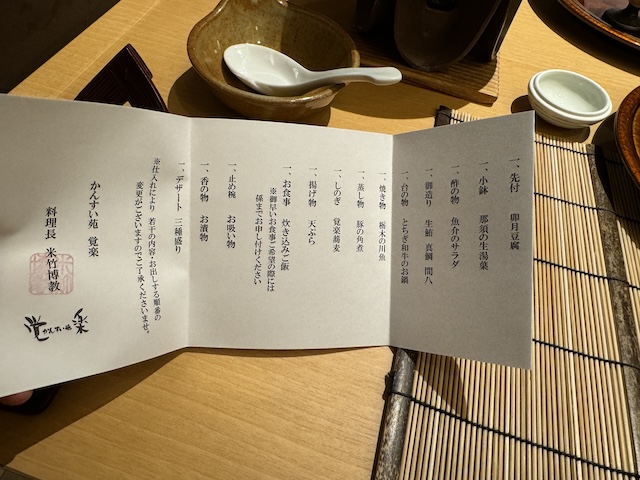 一、先付　卯月豆腐
一、小鉢　那須の生湯葉
一、酢の物　魚介のサラダ
一、御造り　生鮪　真鯛　間八
一、台の物　とちぎ和牛のお鍋
一、焼き物　栃木の川魚
一、蒸し物　豚の角煮
一、しのぎ　覚楽蕎麦
一、揚げ物　天ぷら
一、お食事　炊き込みご飯
※御早いお食事ご希望の際には
係までお申し付けください
一、止め椀　お吸い物
一、香の物　お漬物
一、デザート　三種盛り
※仕入れにより　若干の内容・お出しする順番の
変更がございますのでご了承くださいませ。
かんすい苑　覚楽
料理長　米竹博教
覚かんすい苑楽